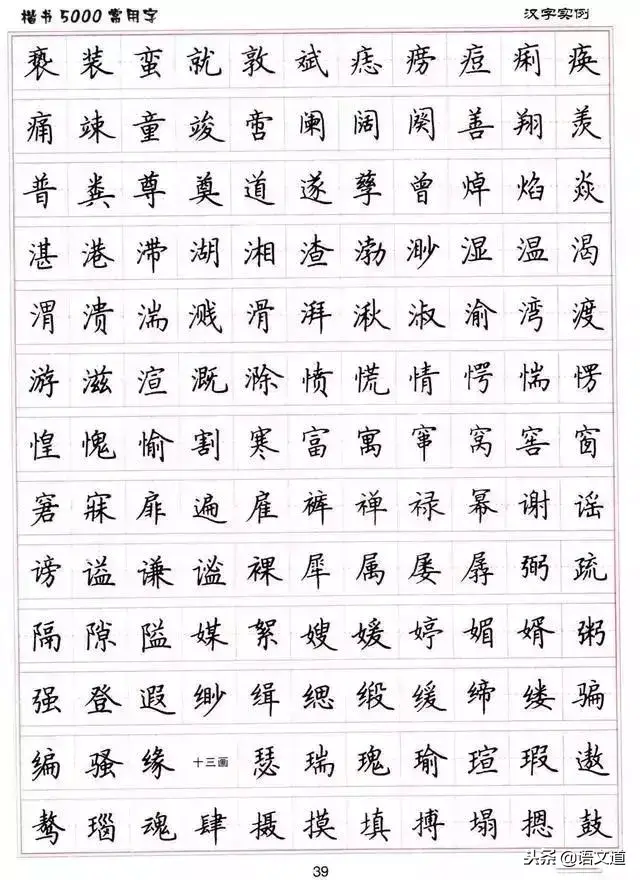 楷书5000常用字 汉字实例
亵 装 蛮 就 敦 斌 痣 痨 痘 痢 痪
痛 竦 童 竣 啻 阑 阔 阕 善 翔 羡
普 粪 尊 奠 道 遂 孳 曾 焯 焰 焱
湛 港 滞 湖 湘 渣 渤 渺 湿 温 渴
渭 溃 湍 溅 滑 湃 湫 淑 渝 湾 渡
游 滋 渲 溉 滁 愤 慌 情 愕 惴 愣
惶 愧 愉 割 寒 富 寓 窜 窝 窖 窗
窘 寐 扉 遍 雇 裤 禅 禄 幂 谢 谣
谤 谥 谦 谧 裸 犀 属 屡 孱 弼 疏
隔 隙 隘 媒 絮 嫂 媛 婷 媚 婿 粥
强 登 遐 缈 缉 缌 缎 缓 缔 缕 骗
编 骚 缘 十三画 瑟 瑞 瑰 瑜 瑄 瑕 遨
骜 瑙 魂 肆 摄 摸 填 搏 塌 摁 鼓
39
头条@语文道